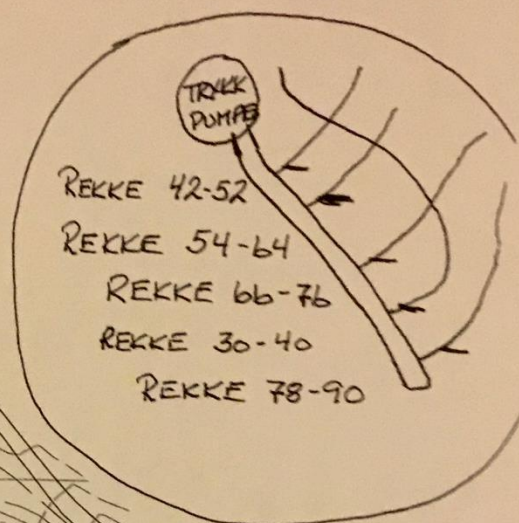 TRYKK
PUMPE
REKKE 42-52
REKKE 54-64
REKKE 66-76
REKKE 30-40
REKKE 78-90